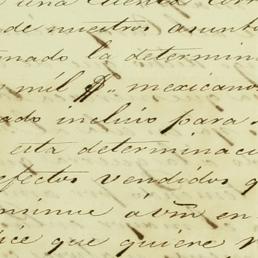 una cuenta corr
de nuestros asunto
onado la determin
mil $.. mexicano
ado incluir para
esta determinaci
efectos vendidos q
sminue á vm en
ice que quiere